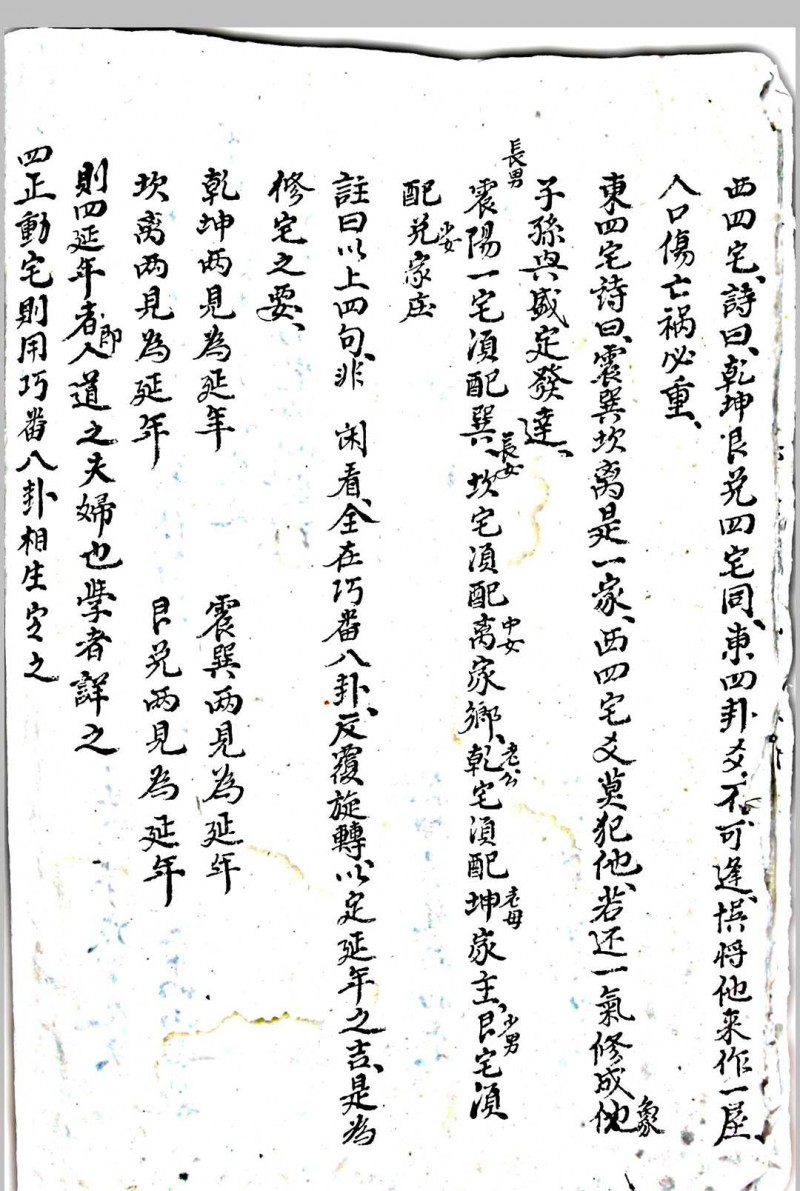 西四宅、詩曰、乾坤艮兌四宅同、東四卦爻不可逢、悞将他来作一屋、
人口傷亡祸必重、
東四宅詩曰、震巽坎离是一家、西四宅爻莫犯他、若还一氣修成他象
子孫興盛定發達、
長男震陽一宅湏配巽長女、坎宅湏配离中女家鄉、乾老公宅湏配坤老母家主、艮少男宅湏
配兌少女家庄
註曰以上四句、非 闲看、全在巧番八卦、反覆旋轉以定延年之吉、是為
修宅之要、
乾坤两見為延年 震巽两見為延年
坎离两見為延年 艮兌两見為延年
則四延年者、即人道之夫婦也學者詳之
四正動宅則用巧番八卦相生定之